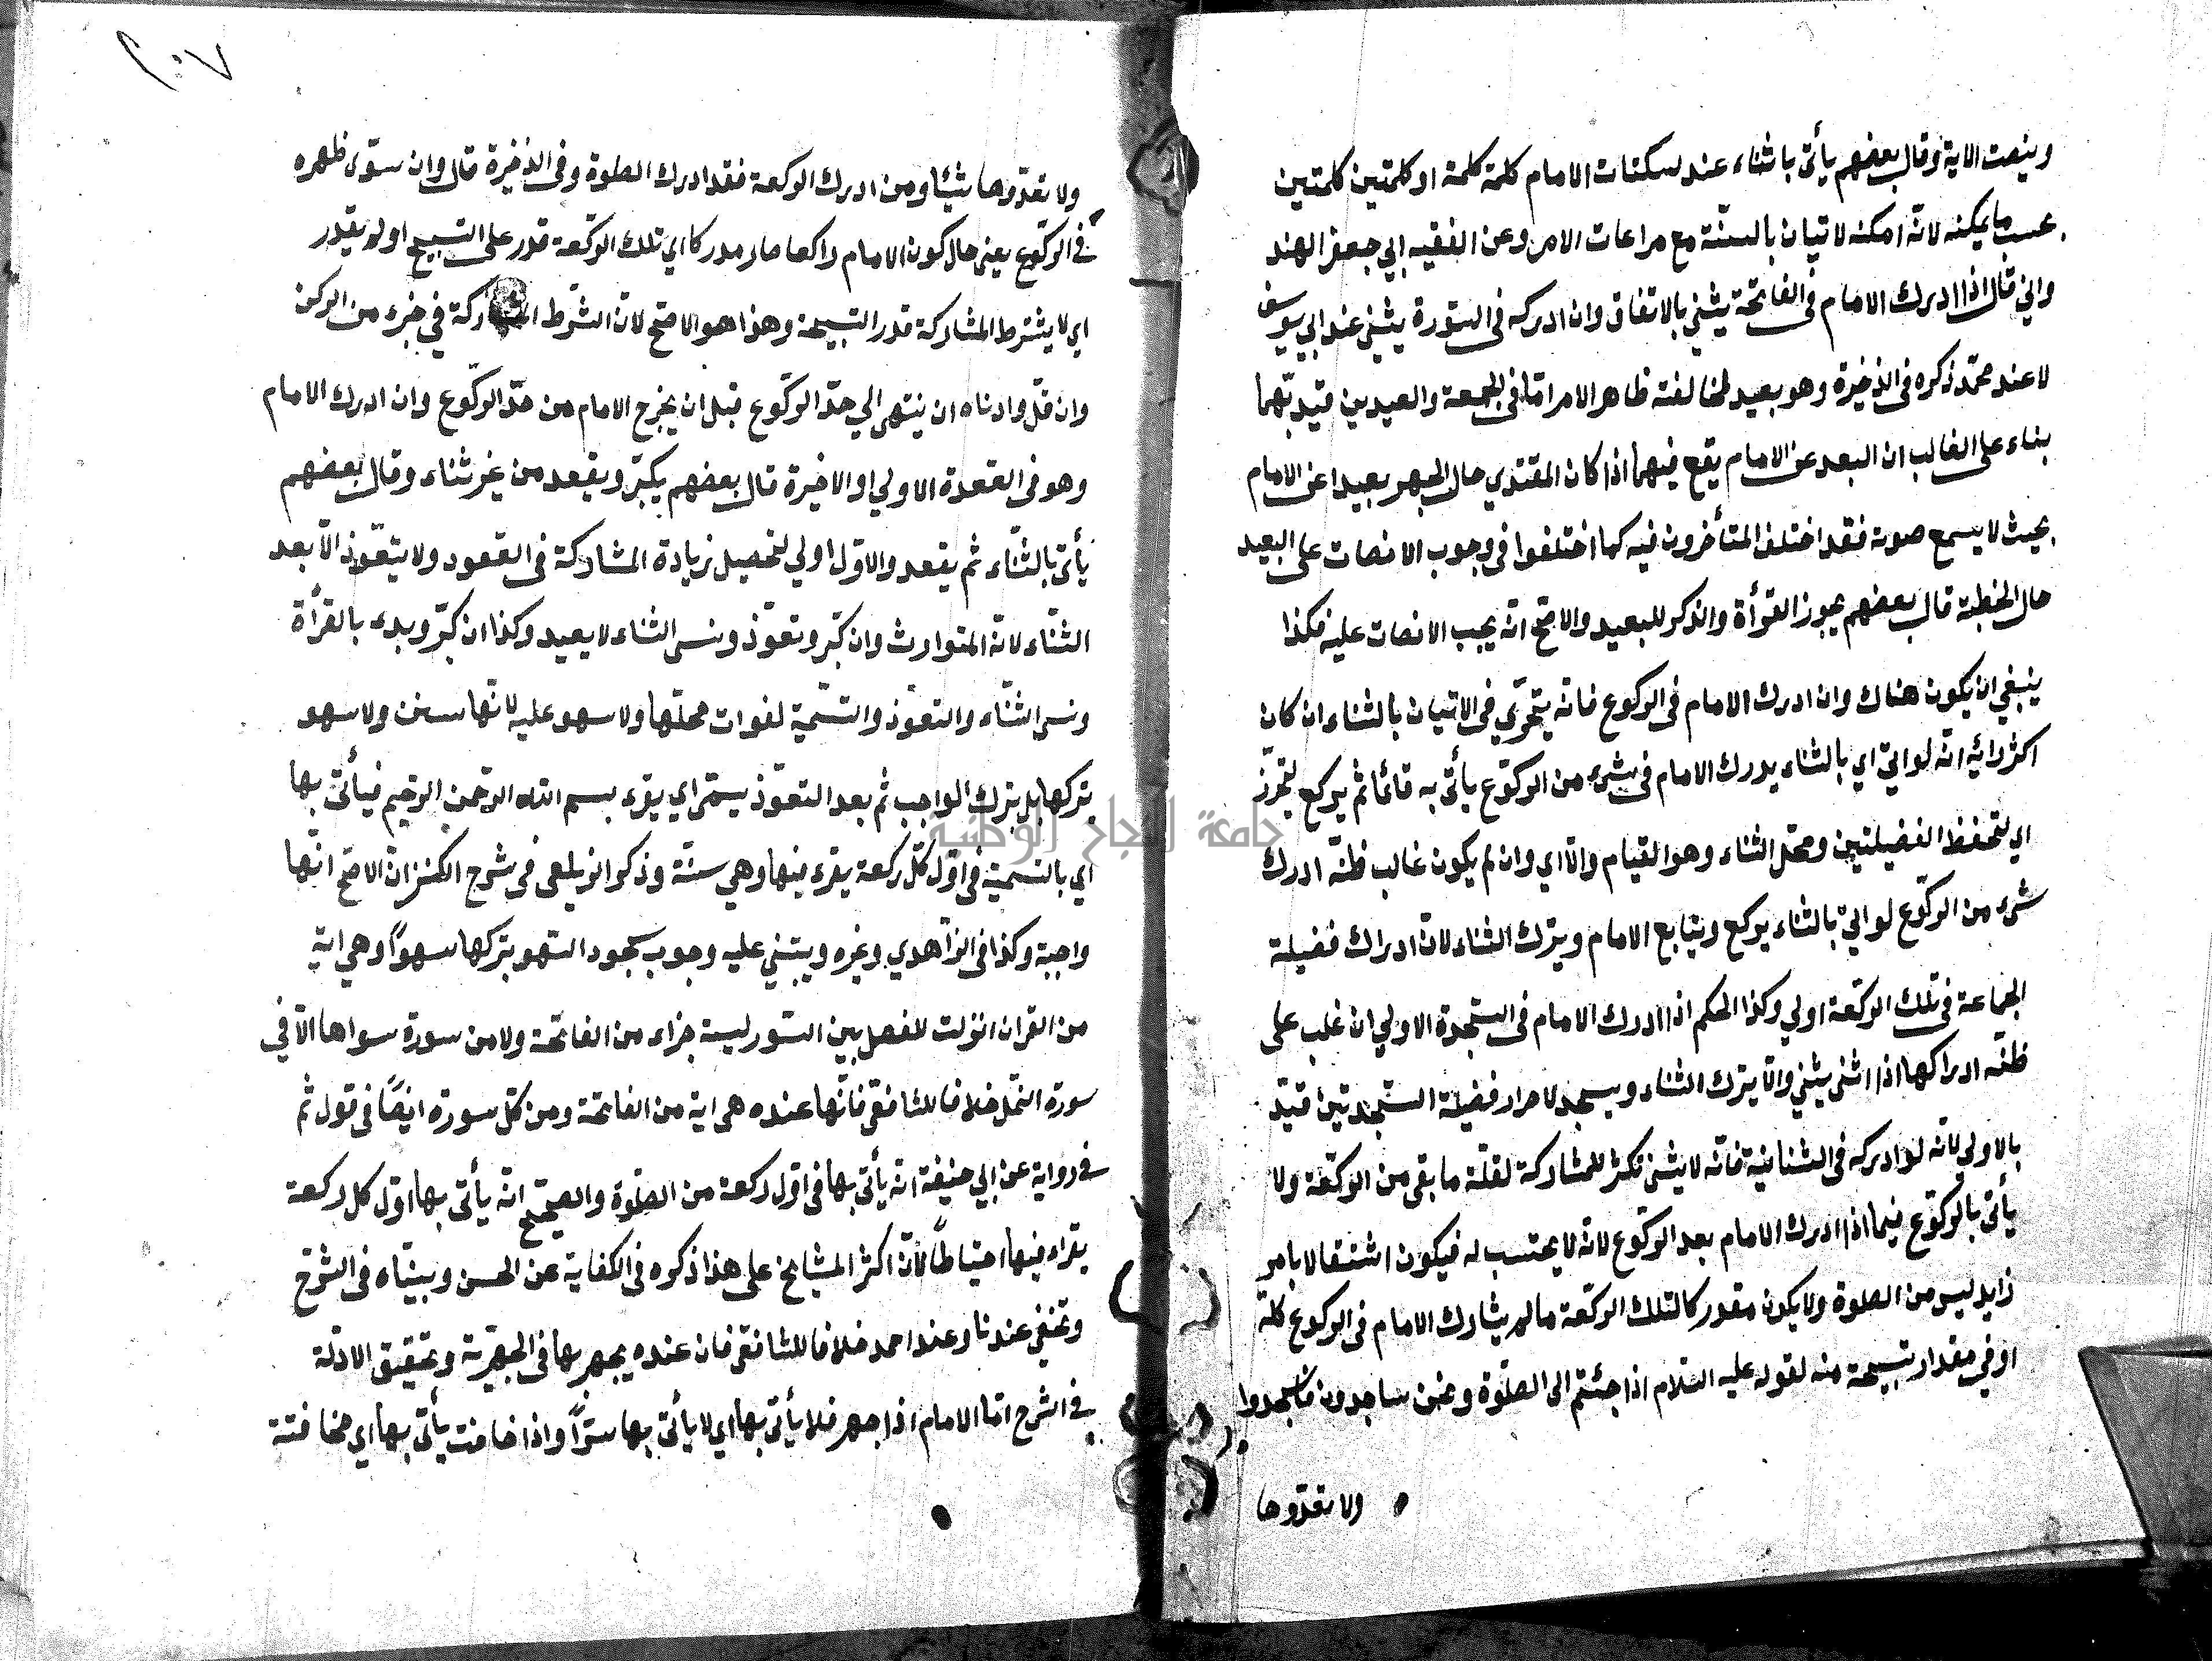 وينصت الاية وقال بعضهم يأتى باثناء عند سكتات الامام كلمة كلمة او كلمتين كلمتين
بحسب ما يمكنه لانّه امكنه لاتيان بالسنّة مع مراعات الامر وعن الفقيه ابي جعفر الهند
واني قال اذا ادرك الامام فى الفاتحة يثني بالاتفاق وان ادركه فى السورة يثني عند ابي يوسف
لا عند محمّد ذكره فى الذخيرة وهو بعيد لمخالفته ظاهر الامر امّا فى الجمعة والعيدين قيد بهما
بناء على الغالب ان البعد عن الامام يقع فيهما اذا كان المقتدي حال الجهر بعيدا عن الامام
بحيث لا يسمع صوته فقد اختلف المتأخرون فيه كما اختلفوا فى وجوب الانصات على البعيد
حال الخطبة قال بعضهم يجوز القرأة والذكر للبعيد والاصح انّه يجب الانصات عليه فكذا
ينبغي ان يكون هناك وان ادرك الامام فى الركوع فانّه يتحرّي فى الاتيان بالثناء ان كان
اكثر رائيه انّه لو اتي اي بالثناء يدرك الامام فى شىء من الركوّع يأتى به قائما ثم يركع ليحرز
اي ليحفظ الفضيلتين ومحلّ الثناء وهو القيام والّا اي وان لم يكون غالب ظنّه ادرك
شىء من الركوّع لو اتي بالثناء يركع ويتابع الامام ويترك الثناء لانّ ادراك فضيلة
الجماعة فى تلك الركعّة اولي وكذا الحكم اذا ادرك الامام فى السّجدة الاولي ان غلب على
ظنّه ادراكها اذا اثنى يثني والّا يترك الثناء ويسجد لاحراز فضيلة السّجدتين قيّد
بالاولي لانّه لو ادركه فى الثنانية فانّه لا يثنى تكثر للمشاركة لقلّة ما بقى من الركعّة ولا
يأتى بالركوّع فيما اذا ادرك الامام بعد الركوّع لانّه لا يحتسب له فيكون اشتغالا بامر
زايد ليس من الصلوة ولا يكون مدركا لتلك الركعّة ما لم يشارك الامام فى الركوع كلّه
او في مقدار تسبيحة منه لقوله عليه السّلام اذا جئتم الى الصلوّة ونحن ساجدون فاسجدوا
ولا تعدّوها
٢٠٧
ولا تعدّوها شيئا ومن ادرك الركعة فقد ادرك الصلوة وفى الذخيرة قال وان سوّى ظهره
فى الركوّع يعنى حال كون الامام راكعا صار مدركا اي تلك الركعّة قدر على التسبيح او لم يقدر
اي لا يشترط المشاركة قدر التسبيحة وهذا هو الاصح لانّ الشّرط المشاركة فى جزء من الركن
وان قلّ وادناه ان ينتهى الي حدّ الركوّع قبل ان يخرج الامام من حدّ الركوّع وان ادرك الامام
وهو فى القعدة الاولي او الاخيرة قال بعضهم يكبرّ ويقعد من غير ثناء وقال بعضهم
يأتى بالثنّاء ثم يقعد والاوّل اولي لتحصيل زيادة المشاركة فى القعود ولا يتعّوذ الّا بعد
الثنّاء لانّه المتوارث وان كبّر وتعوّذ ونسى الثناء لا يعيد وكذا ان كبّر وبدء بالقرأة
ونسى الثنّاء والتعوّذ والتسّمية لفوات محلّها ولا سهو عليه لانّها سنن ولا سهو
بتركها بل بترك الواجب ثم بعد التعوّذ يسمّى اي يقرء بسم الله الرّحمن الرّحيم فيأتى بها
اي بالتسّمية فى اوّل كلّ ركعة يقرء فيها وهي سنّة وذكر الزيلعى فى شرح الكنز انّ الاصح انّها
واجبة وكذا فى الزّاهدي وغيره ويبتنى عليه وجوب سجود السّهو بتركها سهوًا وهي اية
من القران انزلت للفصل بين السّور ليست جزاء من الفاتحة ولا من سورة سواها الّا في
سورة النّمل خلافا للشافعّى فانّها عنده هى اية من الفاتحة ومن كلّ سورة ايضًا فى قول ثم
فى رواية عن ابي حنيفة انّه يأتى بها فى اوّل ركعة من الصّلوة والصحّيح انّه يأتى بها اوّل كل ركعة
يقراء فيها احتياطًا لانّ اكثر المشايخ على هذا ذكره فى الكفاية عن الحسن وبينّاه فى الشرّح
وتخفي عندنا وعند احمد خلافا للشافعّى فان عنده يجهر بها فى الجهرّية وتحقيق الادلّة
فى الشرح امّا الامام اذا جهر فلا يأتى بها اي لا يأتى بها سرًّا واذا خافت يأتى بها اي مخافتة
جامعة النجاح الوطنية